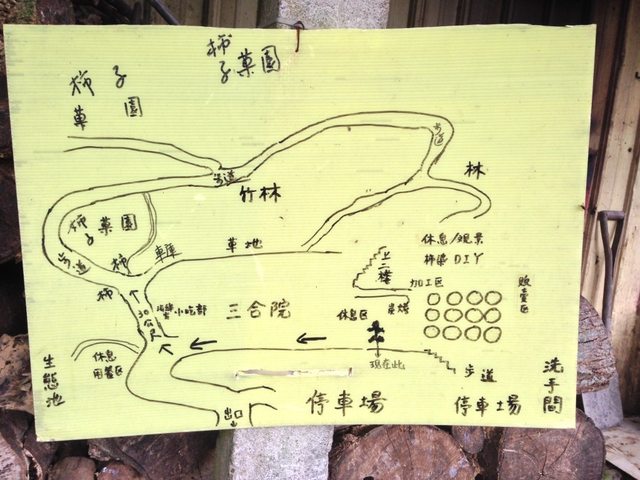 柿
子菓園
柿子
菓園
步道
步道
林
竹林
柿
子菓園
柿
車庫
草地
步道
柿
上二樓
休息/观景
柿染DIY
加工区
販賣区
30公尺
小吃部
三合院
休息区
現在此
休息
用餐区
生態池
步道
洗手間
出口
停車場
停車場